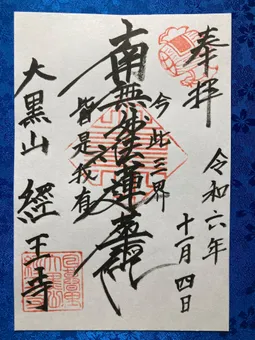 奉拝
令和六年
十一月四日
今此三界
南無妙法蓮華経
皆是我有
大黒山 經王寺